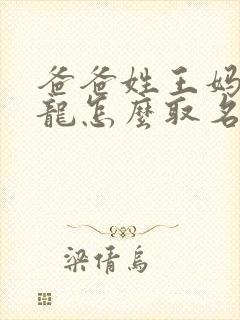 爸爸姓王妈
龍怎麼取名
梁倩烏